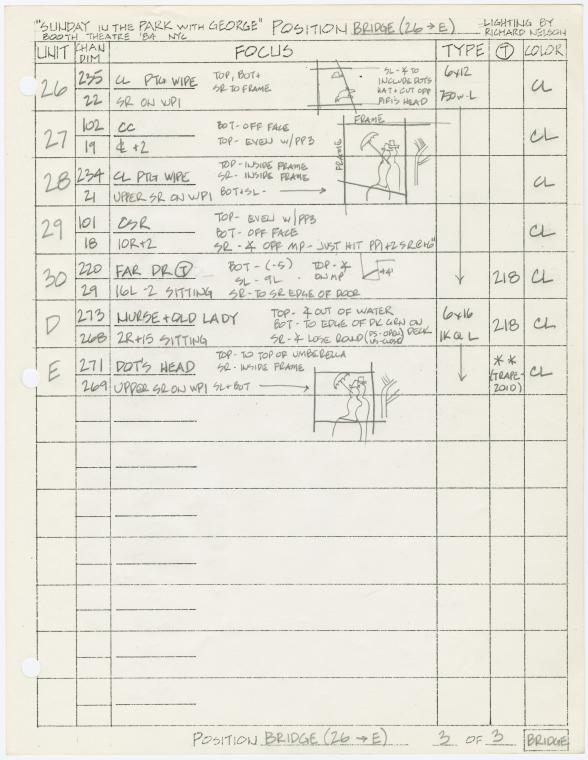 "SUNDAY IN THE PARK WITH GEORGE" POSITION BRIDGE (26 → E) LIGHTING BY
BOOTH THEATRE '84 NYC RICHARD NELSON
UNIT CHAN DIM FOCUS TYPE T COLOR
26 235 CL PTG WIPE TOP, BOT+ SL - ∡ TO 6x12 CL
SR TO FRAME INCLUDE DOTS
22 SR ON WP1 HAT + CUT OFF 750W-L
HEAD
27 102 CC BOT - OFF FACE FRAME CL
19 ℄ +2 TOP - EVEN W/PP3 FRAME
28 234 CL PTG WIPE TOP - INSIDE FRAME CL
SR - INSIDE FRAME
21 UPPER SR ON WP1 BOT+SL - →
29 101 CSR TOP - EVEN W/PP3 CL
BOT - OFF FACE
18 10R+2 SR - ∡ OFF MP - JUST HIT PP1+2
30 220 FAR DR T BOT - (-5) TOP - ∡ 218 CL
SL - 9L ON MP
29 16L -2 SITTING SR - TO SR EDGE OF DOOR
D 273 NURSE + OLD LADY TOP - ∡ OUT OF WATER 6x16 218 CL
BOT - TO EDGE OF DK GRN ON DECK
268 2R+15 SITTING SR - ∡ LOSE ROAD (DS-OPEN US-CLOSE) 1K Q L
E 271 DOT'S HEAD TOP - TO TOP OF UMBERELLA ** CL
SR - INSIDE FRAME (TRAPE-
269 UPPER SR ON WP1 SL+BOT → 2010)
POSITION BRIDGE (26 → E) 3 OF 3 BRIDGE